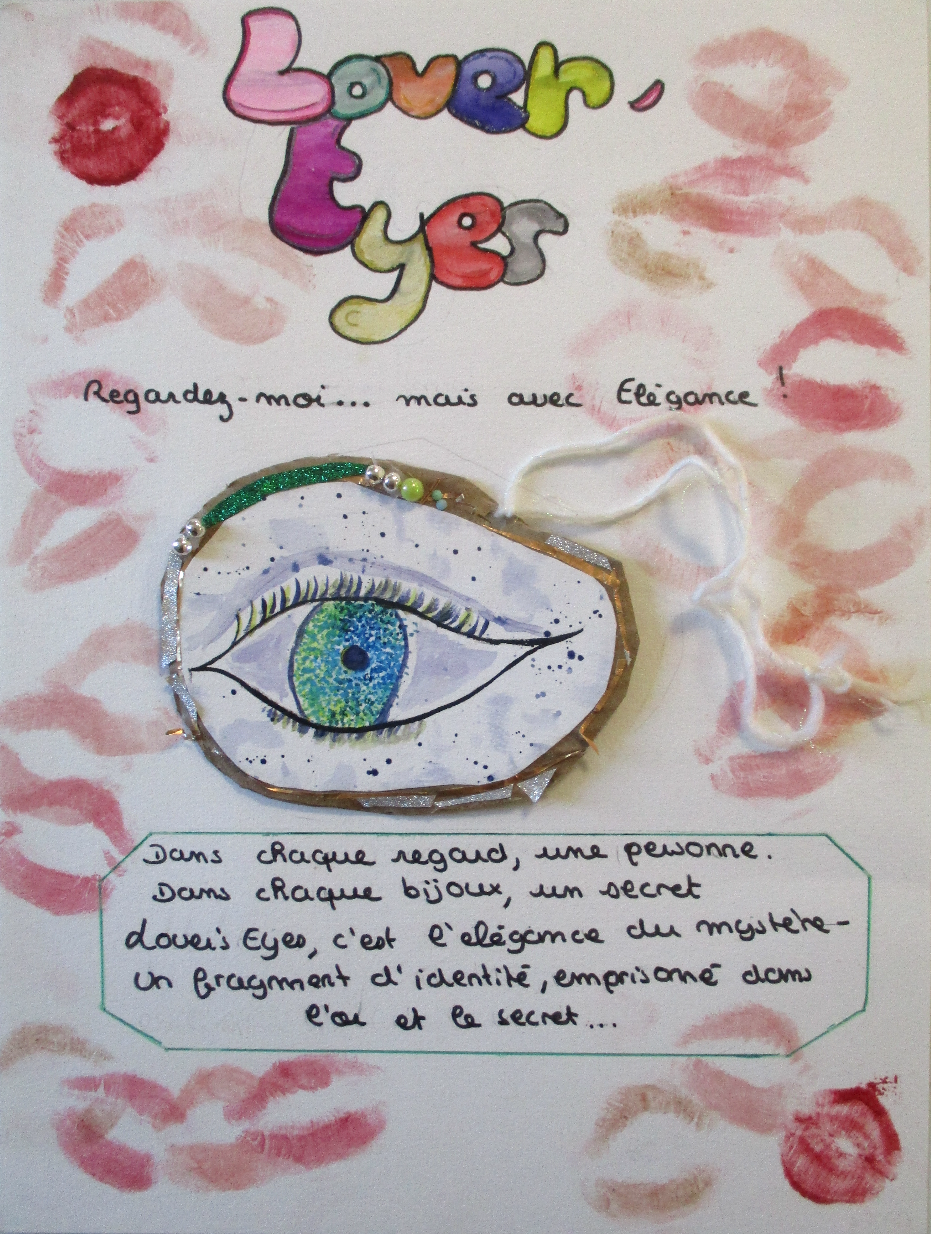 Lover'
Eyes
Regardez-moi... mais avec Elégance !
Dans chaque regard, une personne.
Dans chaque bijoux, un secret
Lover's Eyes, c'est l'elégance du mystère-
Un fragment d'identité, emprisonné dans
l'or et le secret...